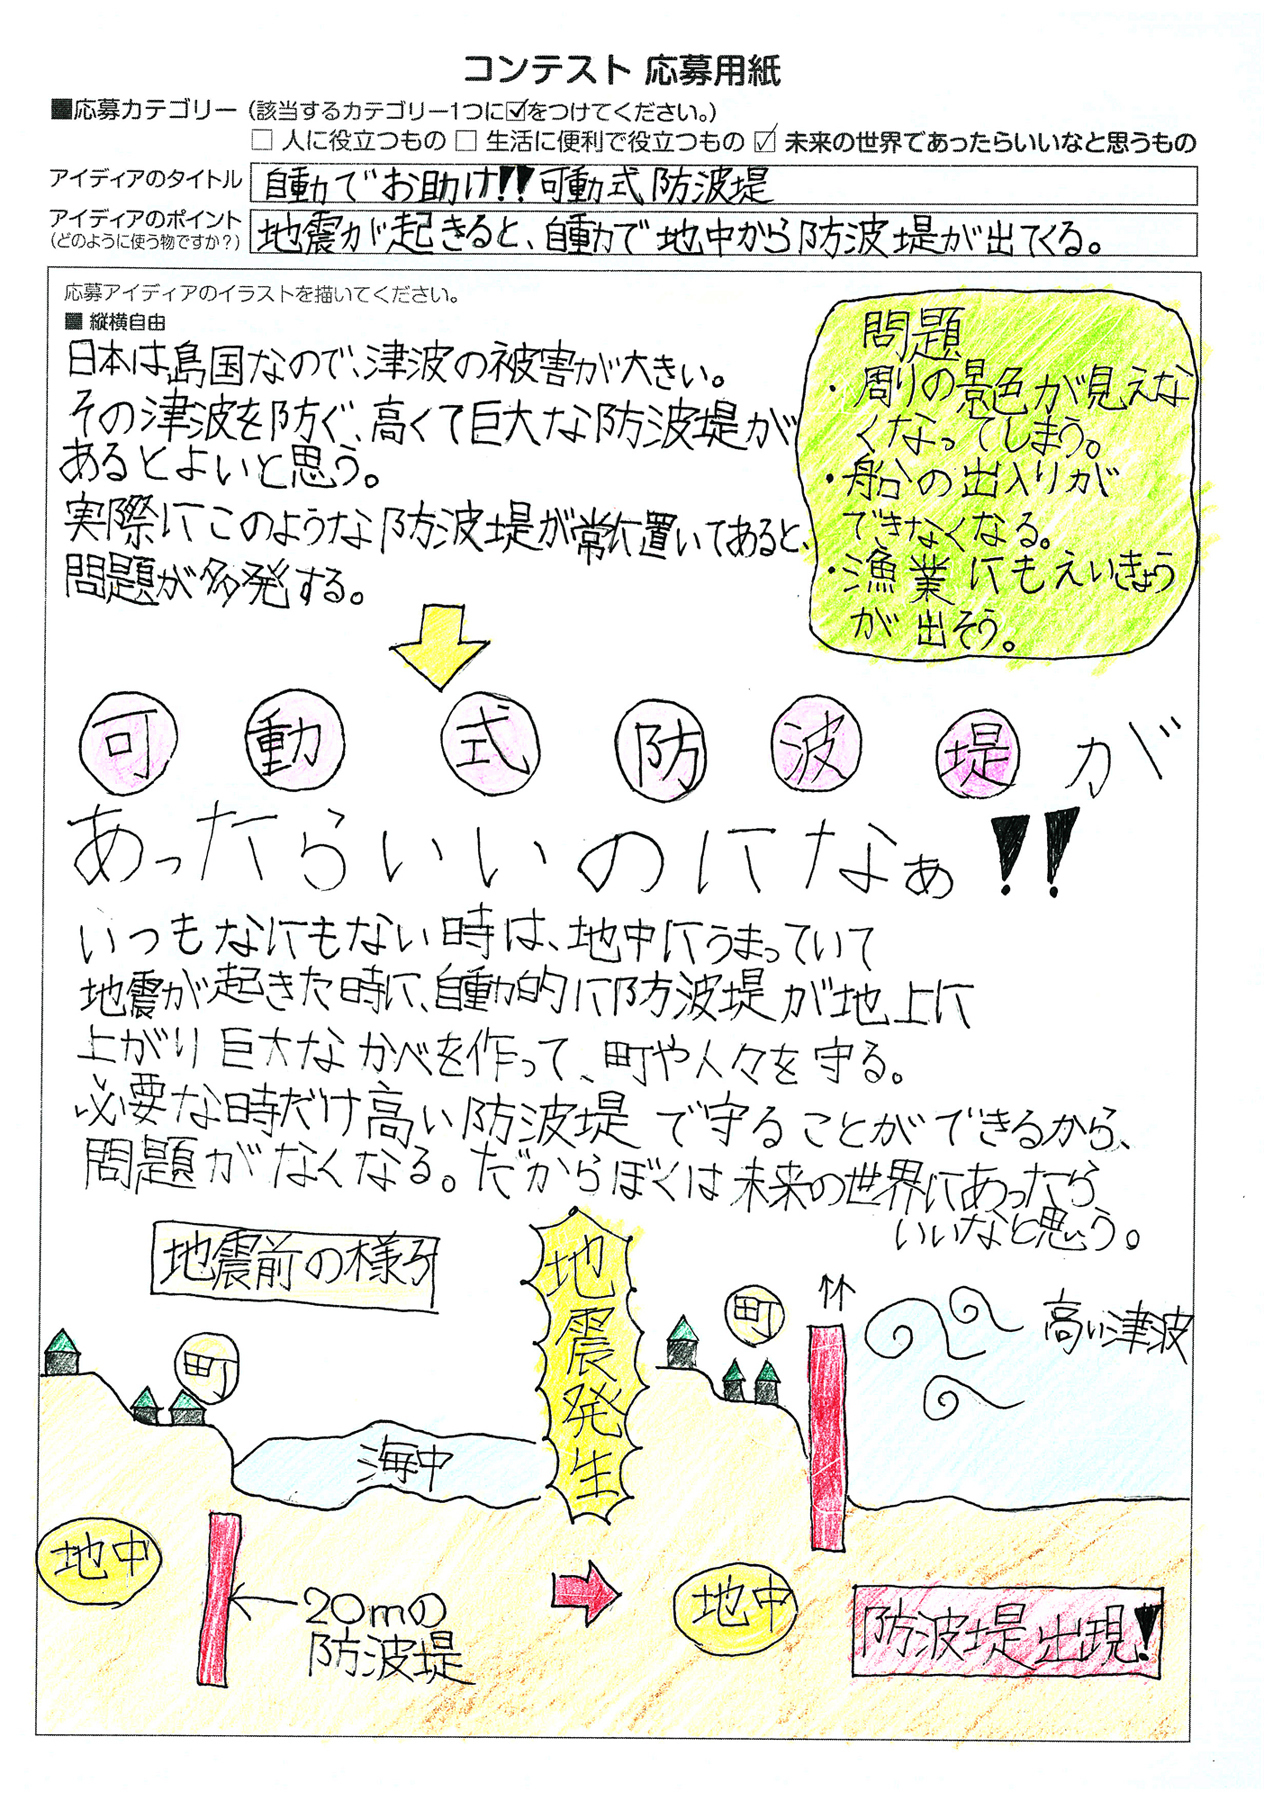 コンテスト 応募用紙
■応募カテゴリー（該当するカテゴリー1つに☑をつけてください。）
□ 人に役立つもの □ 生活に便利で役立つもの ☑ 未来の世界であったらいいなと思うもの
アイディアのタイトル 自動でお助け!!可動式防波堤
アイディアのポイント
（どのように使う物ですか?） 地震が起きると、自動で地中から防波堤が出てくる。
応募アイディアのイラストを描いてください。
■ 縦横自由
日本は島国なので、津波の被害が大きい。
その津波を防ぐ、高くて巨大な防波堤が
あるとよいと思う。
実際にこのような防波堤が常に置いてあると、
問題が多発する。
問題
・周りの景色が見えな
くなってしまう。
・船の出入りが
できなくなる。
・漁業にもえいきょう
が出そう。
可動式防波堤が
あったらいいのになぁ!!
いつもなにもない時は、地中にうまっていて
地震が起きた時に、自動的に防波堤が地上に
上がり巨大なかべを作って、町や人々を守る。
必要な時だけ高い防波堤で守ることができるから、
問題がなくなる。だからぼくは未来の世界にあったら
いいなと思う。
地震前の様子
町
海中
地中
20mの
防波堤
地震発生
町
高い津波
地中
防波堤出現!